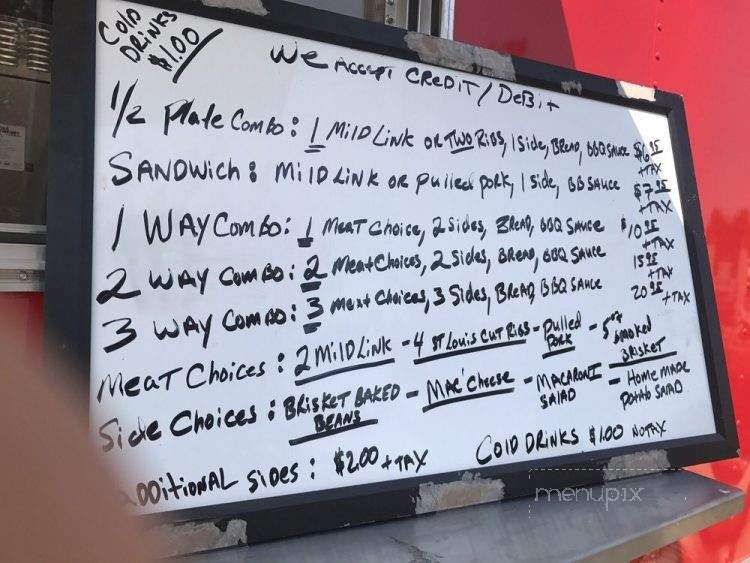 COLD
DRINKS
$1.00
WE ACCEPT CREDIT/DEBIT
1/2 Plate Combo: 1 MILD LINK OR TWO RIBS, 1 Side, BREAD, BBQ SAUCE $6.95 +TAX
SANDWich: MILD LINK OR pulled pork, 1 Side, BB SAUCE $7.95 +TAX
1 WAY COMBO: 1 MEAT CHOICE, 2 Sides, BREAD, BBQ SAUCE $10.95 +TAX
2 WAY COMBO: 2 Meat Choices, 2 Sides, BREAD, BBQ SAUCE 15.95 +TAX
3 WAY COMBO: 3 Meat Choices, 3 Sides, BREAD, BBQ SAUCE 20.95 +TAX
MEAT CHOICES: 2 MILD LINK - 4 ST LOUIS CUT RIBS - Pulled PORK - 5oz SMOKED BRISKET
Side Choices: BRISKET BAKED BEANS - MAC'Cheese - MACARONI SALAD - HOMEMADE POTATO SALAD
ADDITIONAL SIDES: $2.00 +TAX
COLD DRINKS $1.00 NO TAX
menupix